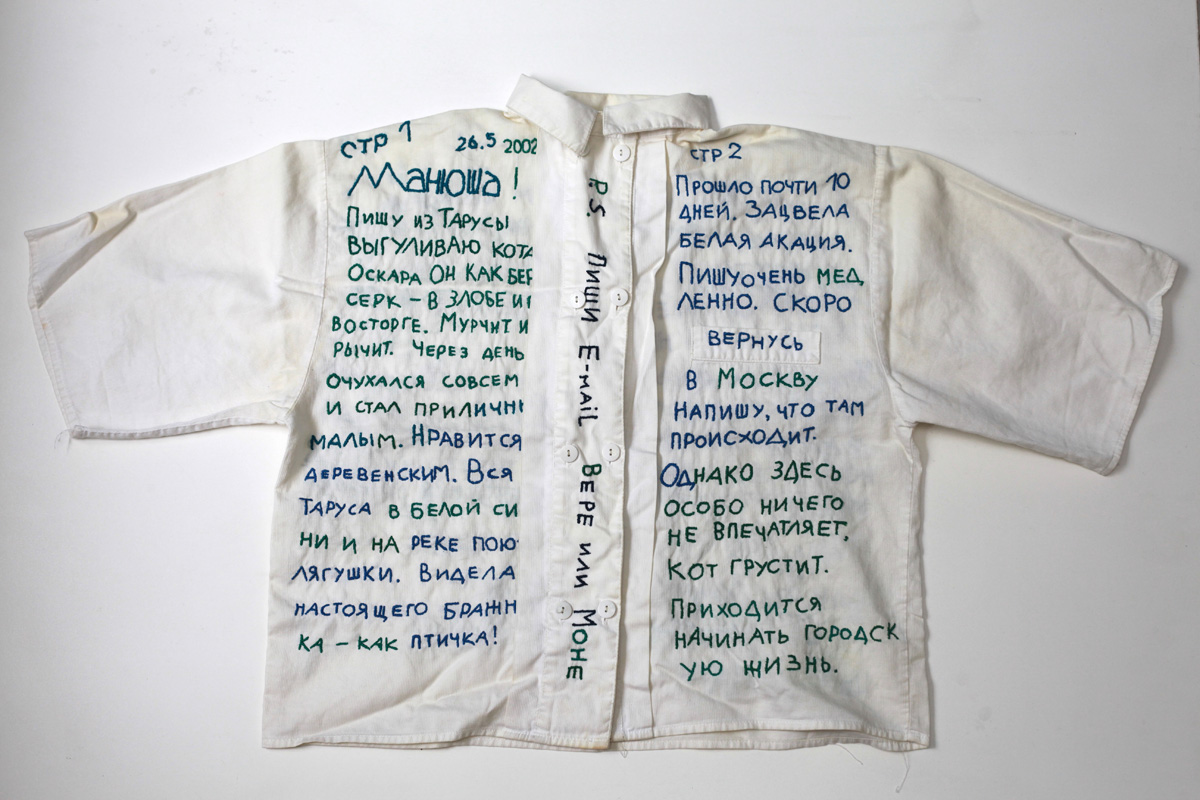 СТР 1
26.5 2002
Манюша!
Пишу из Тарусы
выгуливаю кота
Оскара он как бер
серк – в злобе и
восторге. Мурчит и
рычит. Через день
очухался совсем
и стал приличн
малым. Нравится
деревенским. Вся
Таруса в белой си
ни и на реке пою
лягушки. Видела
настоящего бражн
ка – как птичка!
P.S. Пиши E-mail Вере или Моне
СТР 2
Прошло почти 10
дней. Зацвела
белая акация.
Пишу очень мед,
ленно. Скоро
вернусь
в Москву
Напишу, что там
происходит.
Однако здесь
особо ничего
не впечатляет,
Кот грустит.
Приходится
начинать городск
ую жизнь.